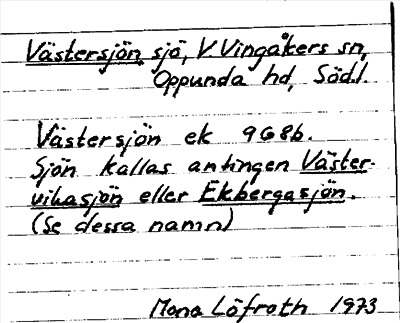 Västersjön, sjö, V Vingåkers sn,
Oppunda hd, Södl.
Västersjön ek 9G8b.
Sjön kallas antingen Väster-
vikasjön eller Ekbergasjön.
(Se dessa namn)
Mona Löfroth 1973